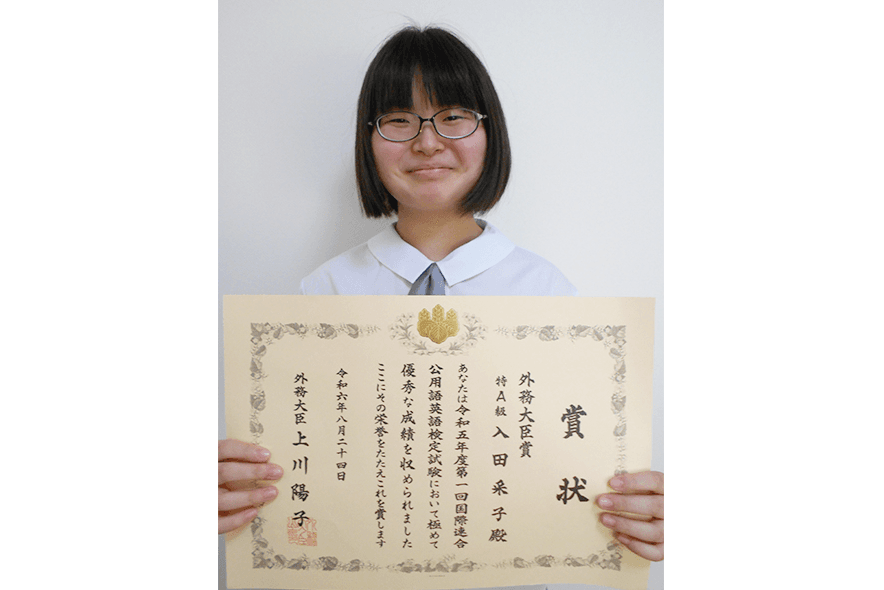 賞状
外務大臣賞
特A級 入田采子殿
あなたは令和五年度第一回国際連合
公用語英語検定試験において極めて
優秀な成績を収められました
ここにその栄誉をたたえこれを賞します
令和六年八月二十四日
外務大臣 上川陽子